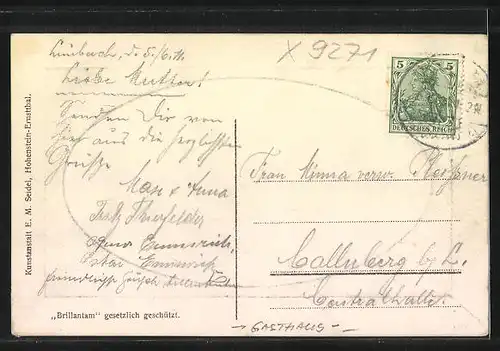 Limbach, d. 5./6. 11.
Liebe Mutter!
Senden Dir von
hier aus die herzlichsten
Grüsse
Max u. Anna
Emmrich,
Oskar Emmrich
X 9271
5 5
DEUTSCHES REICH
Frau Minna verw.
Callnberg b/ L.
Centralhalle
- GASTHAUS -
Kunstanstalt E. M. Seidel, Hohenstein-Ernstthal.
„Brillantam" gesetzlich geschützt.